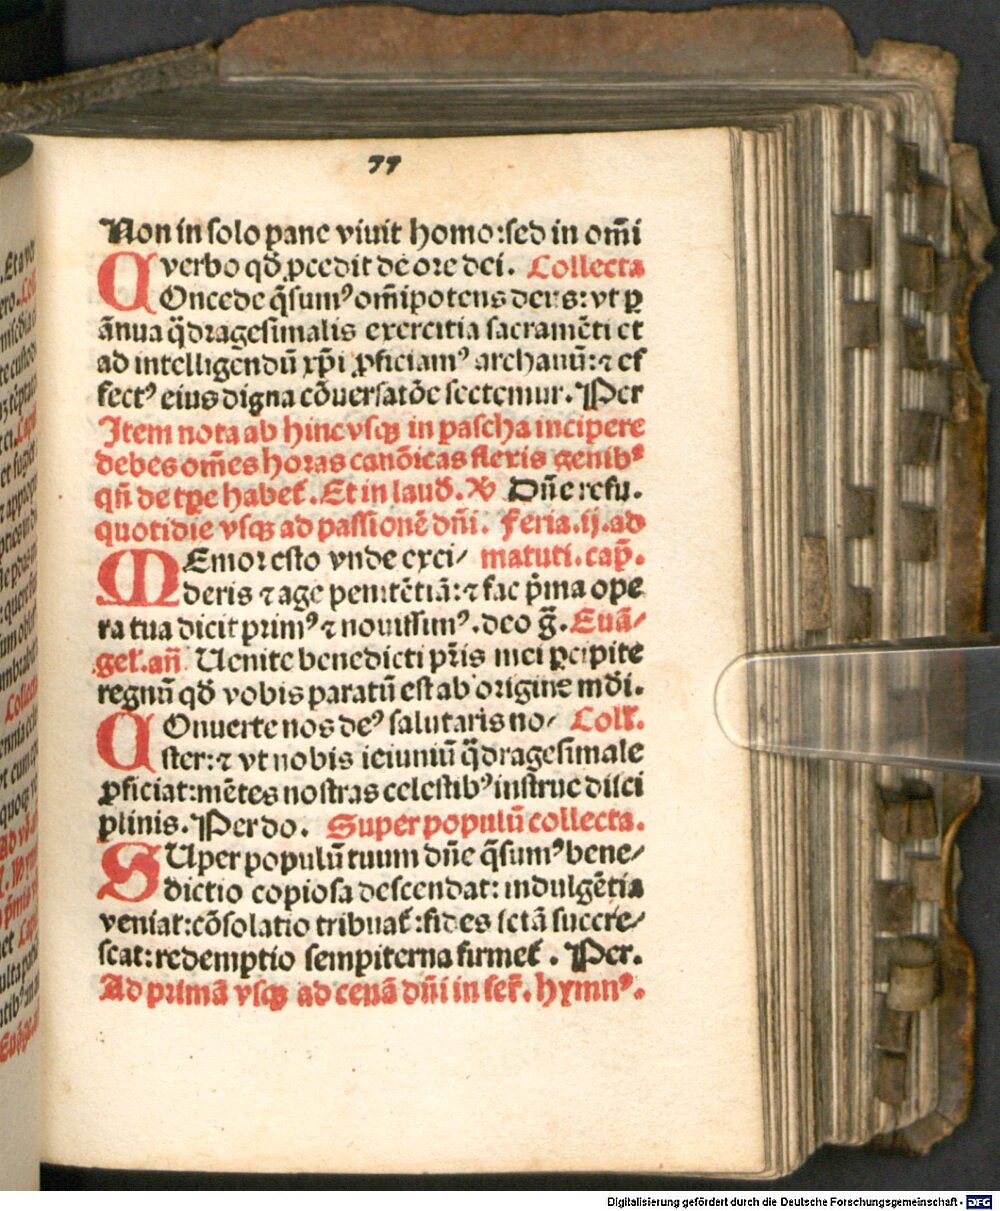 77
Non in solo pane viuit homo:sed in om̄i
verbo qđ ꝓcedit de ore dei. Collecta
COncede q̄sumꝰ om̄ipotens deus:vt ꝑ
ānua q̄dragesimalis exercitia sacramēti et
ad intelligendū xp̄i ꝓficiamꝰ archanū:⁊ ef
fectꝰ eius digna cōuersatōe sectemur. Per
Item nota ab hinc vsqꝫ in pascha incipere
debes om̄es horas canōicas flexis genibꝰ
qn̄ de tꝑe habet᷑. Et in laud. ℣ Dn̄e refu.
quotidie vsqꝫ ad passionē dn̄i. Feria.ij.ad
MEmor esto vnde exci⸗ matuti.cap̄.
deris ⁊ age penitētiā:⁊ fac p̄ma ope
ra tua dicit primꝰ ⁊ nouissimꝰ.deo ḡ. Euā⸗
gel᷑.an̄ Uenite benedicti pr̄is mei ꝑcipite
regnū qđ vobis paratū est ab origine mōi.
COnuerte nos deꝰ salutaris no⸗ Coll᷑.
ster:⁊ vt nobis ieiuniū q̄dragesimale
ꝓficiat:mētes nostras celestibꝰ instrue disci
plinis. Per do. Super populū collecta.
SUper populū tuum dn̄e q̄sumꝰ bene⸗
dictio copiosa descendat: indulgētia
veniat:cōsolatio tribuat᷑:fides sctā succre⸗
scat:redemptio sempiterna firmet᷑. Per.
Ad primā vsqꝫ ad cenā dn̄i in fer᷑. hymnꝰ.